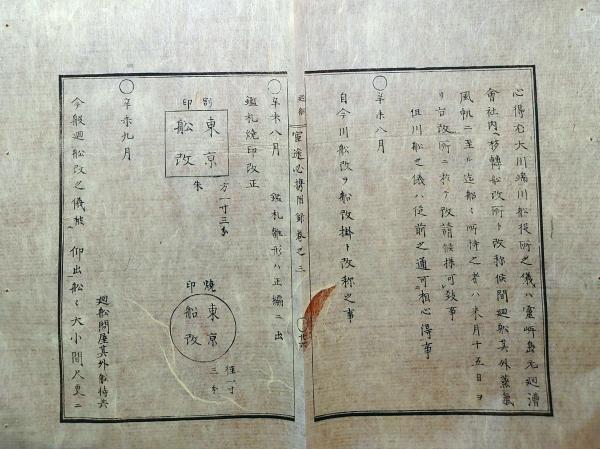 心得右大川端川船役所之儀ハ霊岸島元廻漕
會社内へ移轉船改所ト改称候間廻船其外蒸氣
風帆ニ至ル迄船ミ所持之者ハ来月十五日ヨ
リ右改所ニ於テ改請候様可致事
但川船之儀ハ従前之通可相心得事
辛未八月
自今川船改ヲ船改掛ト改称之事
廻船 官途必携附録巻之三
辛未八月 鑑札雛形ハ正編ニ出
鑑札焼印改正
印
東京
船改
方一寸三分
朱
焼印
東京
船改
径一寸
三分
辛未九月
廻船問屋其外船持共
今般廻船改之儀被 仰出船ミ大小間尺更ニ